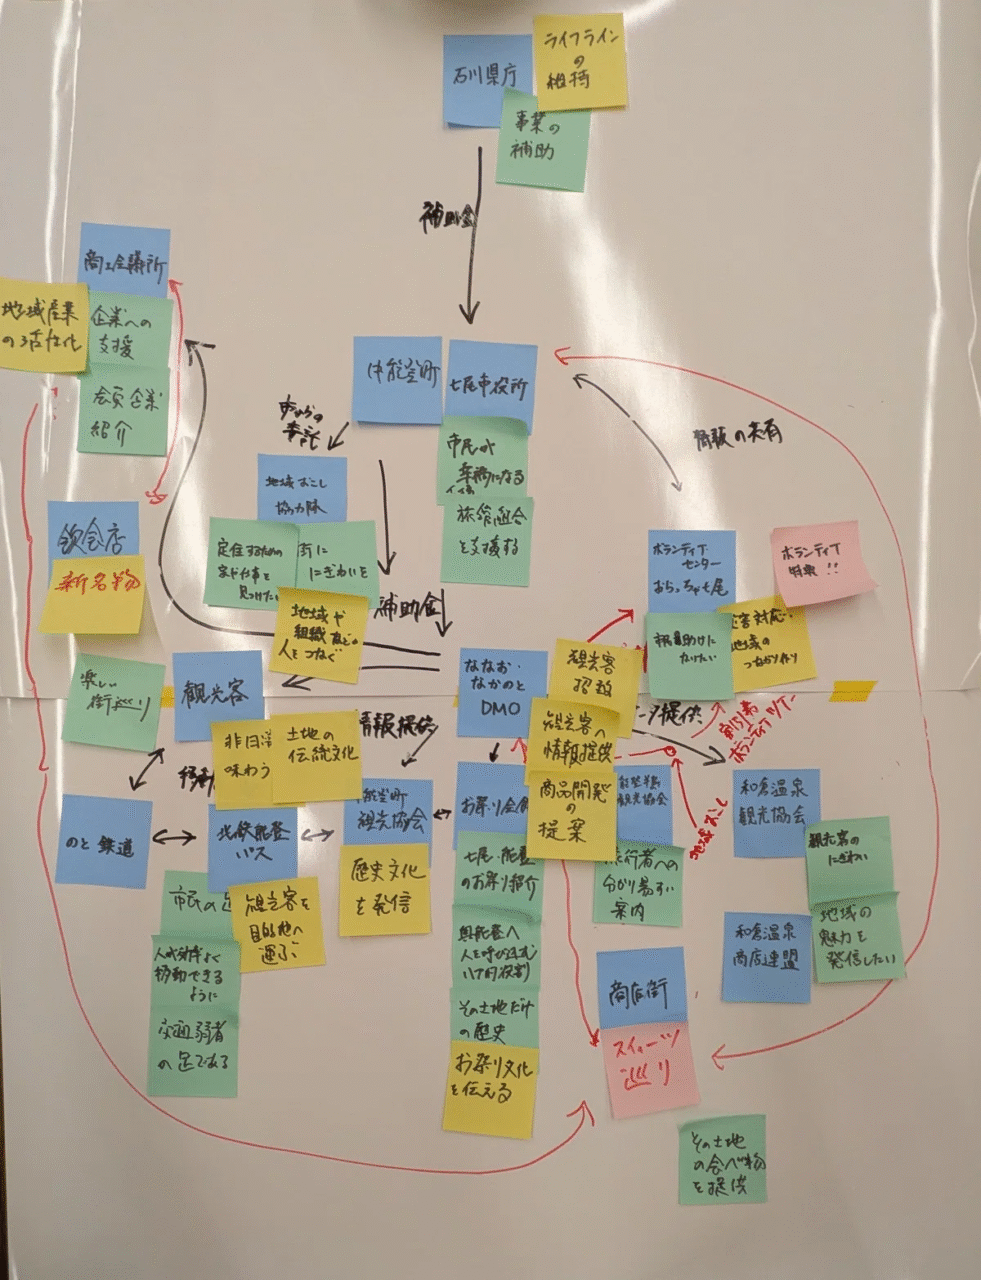 石川県庁
ライフライン
の
維持
事業の
補助
補助金
商工会議所
地域産業
の活性化
企業への
支援
会員企業
紹介
中能登町
七尾市役所
市民が
幸福になる
旅館組合
を支援する
市からの
委託
情報の共有
地域おこし
協力隊
定住するための
家や仕事を
見つけたい
街に
にぎわいを
地域や
組織などの
人をつなぐ
補助金
飲食店
新名物
楽しい
街巡り
ボランティア
センター
おらっちゃ七尾
ボランティア
特典!!
地域の
つながり作り
観光客
非日常
味わう
土地の
伝統文化
情報提供
ななお・
なかのと
DMO
観光客
招致
観光客へ
情報提供
商品開発
の
提案
提供
割引券
ボランティアツアー
地域おこし
のと鉄道
北鉄能登
バス
観光協会
お祭り会館
観光協会
和倉温泉
観光協会
市民の足
観光客を
目的地へ
運ぶ
人が効率よく
移動できる
ように
交通弱者
の足である
歴史文化
を発信
七尾・能登
のお祭り紹介
奥能登へ
人を呼び込む
ハブ的役割
その土地だけ
の歴史
お祭り文化
を伝える
旅行者への
分かり易い
案内
観光客の
にぎわい
地域の
魅力を
発信したい
和倉温泉
商店連盟
商店街
スイーツ
巡り
その土地
の食べ物
を提供